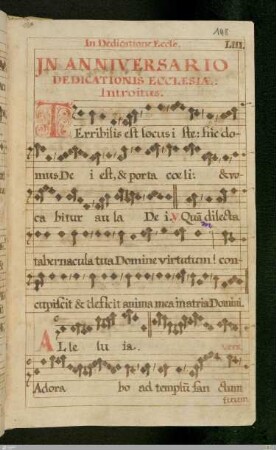 148
In Dedicatione Eccle. LIII.
IN ANNIVERSARIO
DEDICATIONIS ECCLESIÆ:
Introitus.
TErribilis est locus i ste: hic do-
mus De i est, & porta cœ li: & vo-
ca bitur au la De i. V Quã dilecta
tabernacula tua Domine virtutum! con-
cupiscit & deficit anima mea in atria Domini.
ALle lu ia.
Adora bo ad templũ san ctum